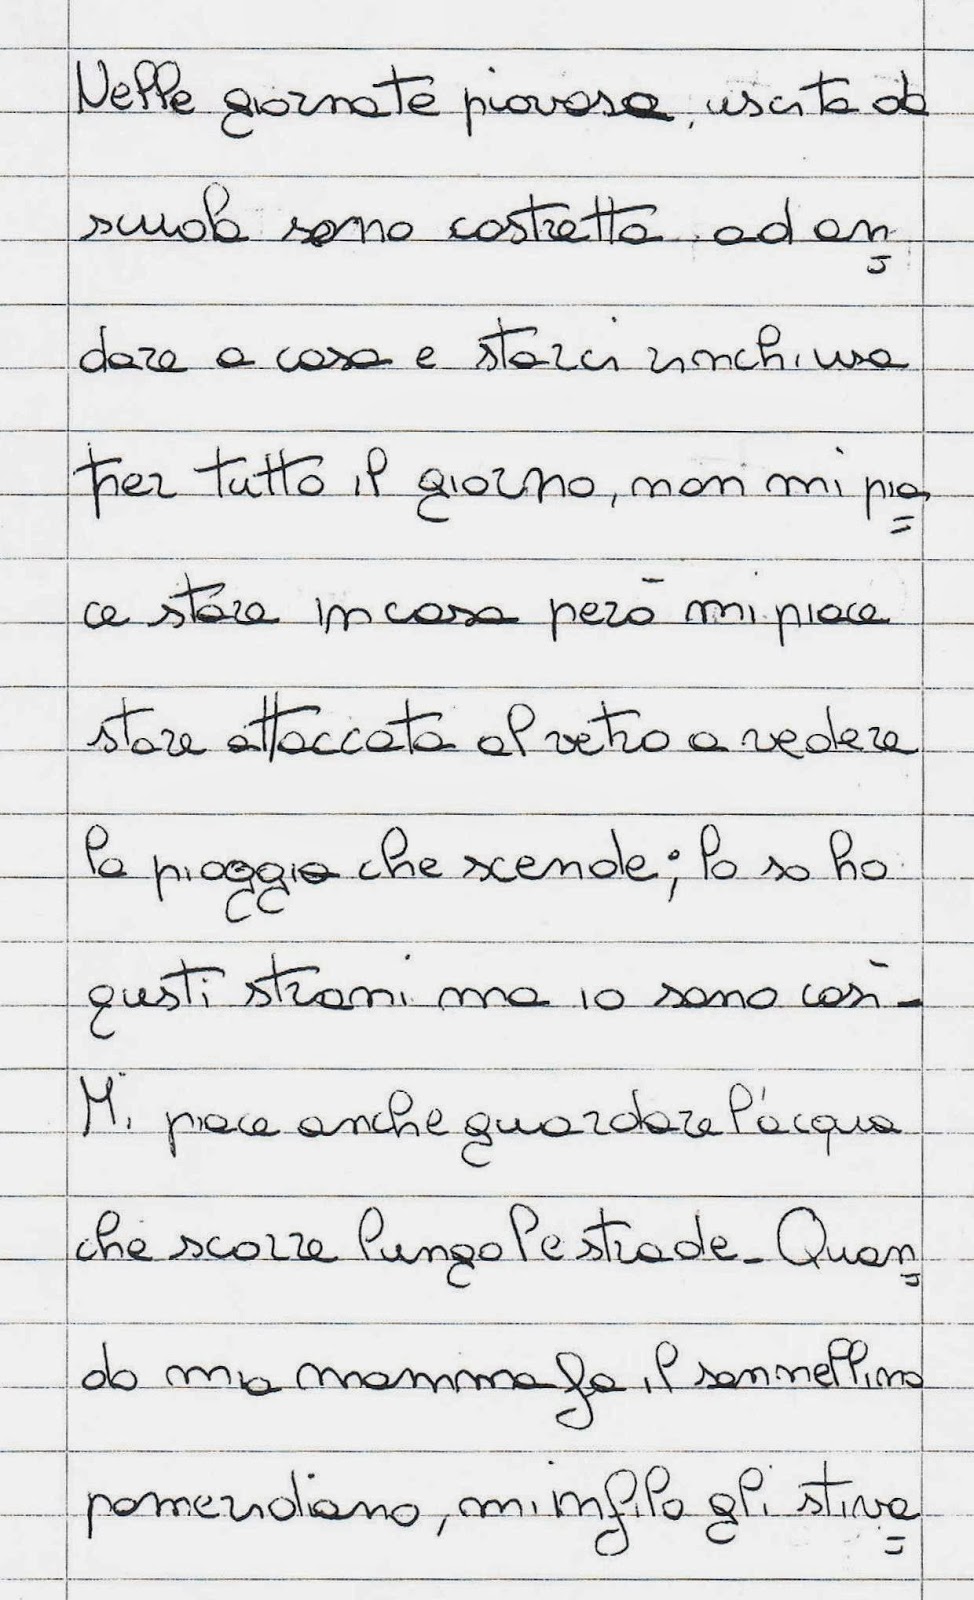 Nelle giornate piovose, uscita da
scuola sono costretta ad an
dare a casa e starci rinchiusa
per tutto il giorno, non mi pia=
ce stare in casa però mi piace
stare attaccata al vetro a vedere
la pioggia che scende; lo so ho
gusti strani ma io sono così-
Mi piace anche guardare l'acqua
che scorre lungo le strade- Quan
do mia mamma fa il sonnellino
pomeridiano, mi infilo gli stiva=